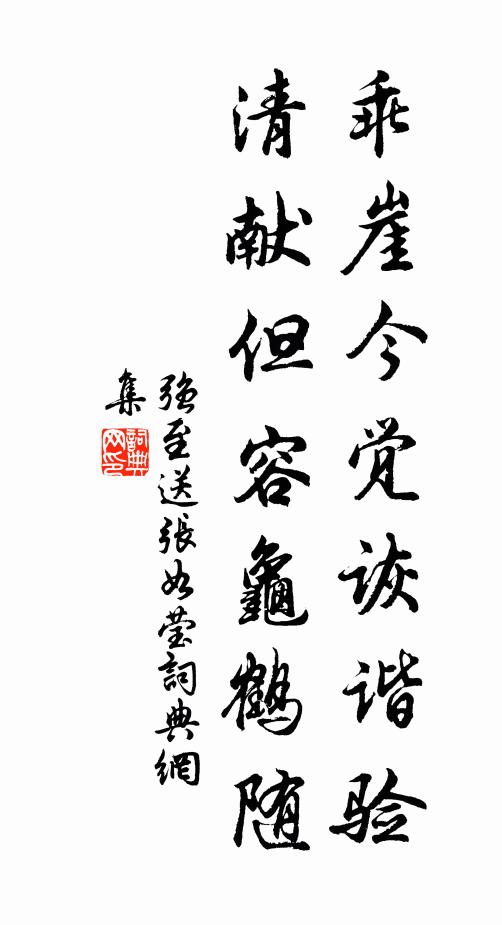 乖崖今觉诙谐验
清献但容龜鹤随
强至送張如莹詞典網
集
詞典网印